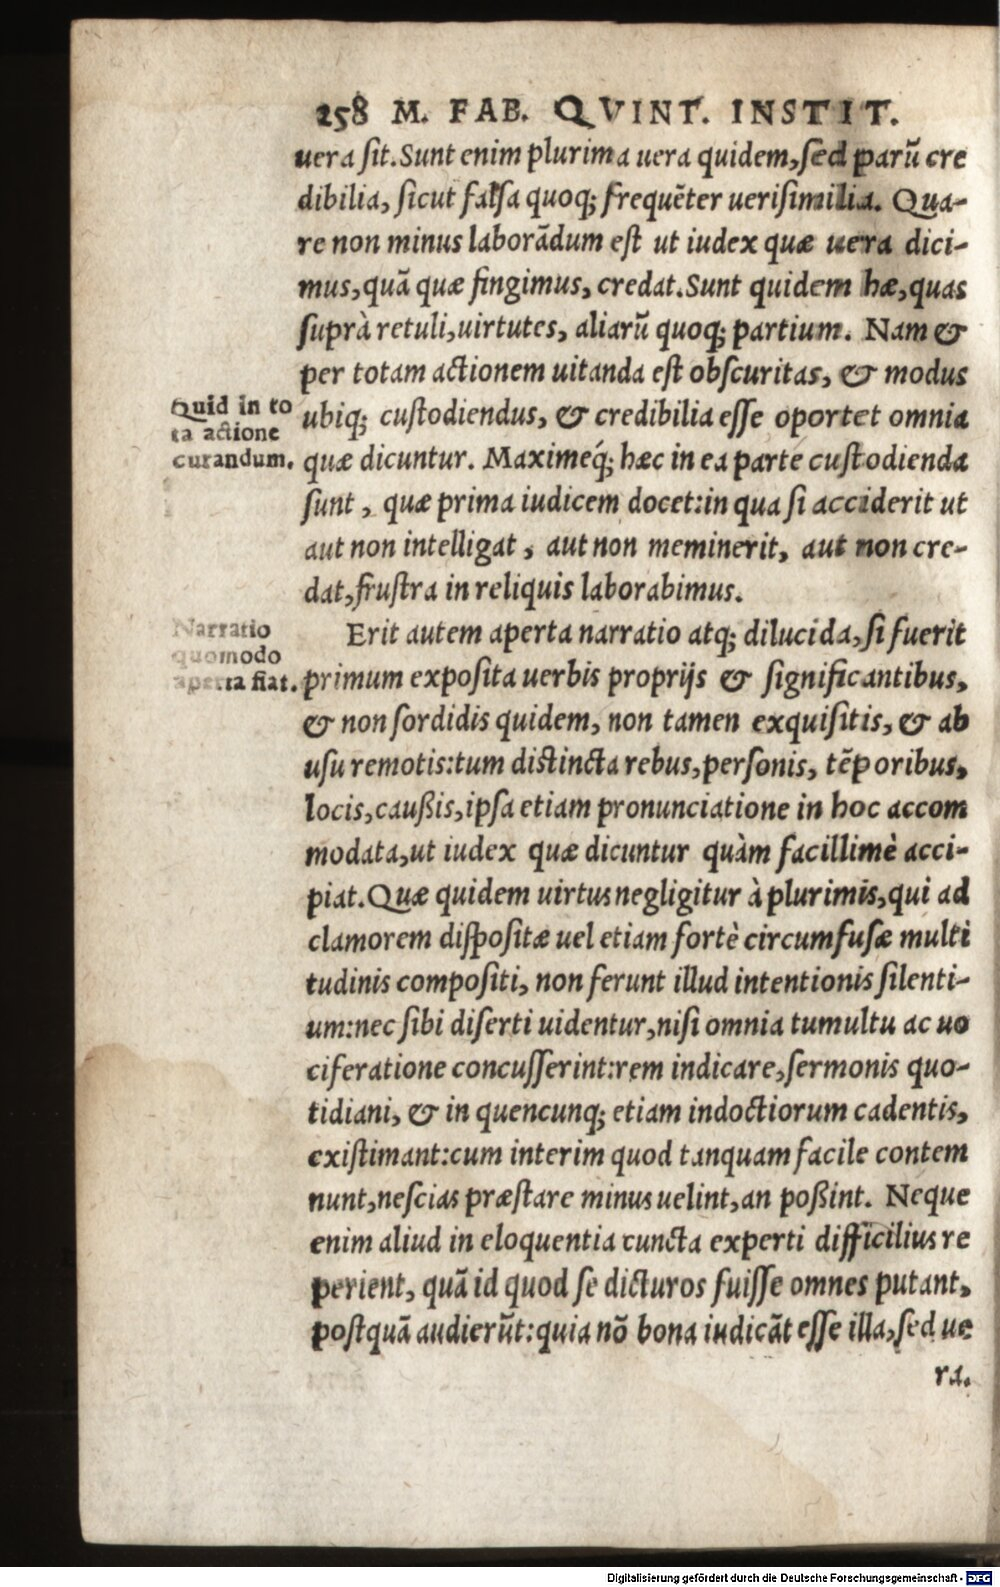 258 M. FAB. QVINT. INSTIT.
uera sit. Sunt enim plurima uera quidem, sed parū cre
dibilia, sicut falsa quoq; frequēter uerisimilia. Qua-
re non minus laborādum est ut iudex quæ uera dici-
mus, quā quæ fingimus, credat. Sunt quidem hæ, quas
suprà retuli, uirtutes, aliarū quoq; partium. Nam &
per totam actionem uitanda est obscuritas, & modus
ubiq; custodiendus, & credibilia esse oportet omnia
quæ dicuntur. Maximeq́; hæc in ea parte custodienda
sunt, quæ prima iudicem docet: in qua si acciderit ut
aut non intelligat, aut non meminerit, aut non cre-
dat, frustra in reliquis laborabimus.
Quid in to
ta actione
curandum.
Erit autem aperta narratio atq; dilucida, si fuerit
primum exposita uerbis proprijs & significantibus,
& non sordidis quidem, non tamen exquisitis, & ab
usu remotis: tum distincta rebus, personis, tēporibus,
locis, caußis, ipsa etiam pronunciatione in hoc accom
modata, ut iudex quæ dicuntur quàm facillimè acci-
piat. Quæ quidem uirtus negligitur à plurimis, qui ad
clamorem dispositæ uel etiam fortè circumfusæ multi
tudinis compositi, non ferunt illud intentionis silenti-
um: nec sibi diserti uidentur, nisi omnia tumultu ac uo
ciferatione concusserint: rem indicare, sermonis quo-
tidiani, & in quencunq; etiam indoctiorum cadentis,
existimant: cum interim quod tanquam facile contem
nunt, nescias præstare minus uelint, an poßint. Neque
enim aliud in eloquentia cuncta experti difficilius re
perient, quā id quod se dicturos fuisse omnes putant,
postquā audierūt: quia nō bona iudicāt esse illa, sed ue
ra.
Narratio
quomodo
aperta fiat.
Digitalisierung gefördert durch die Deutsche Forschungsgemeinschaft - DFG